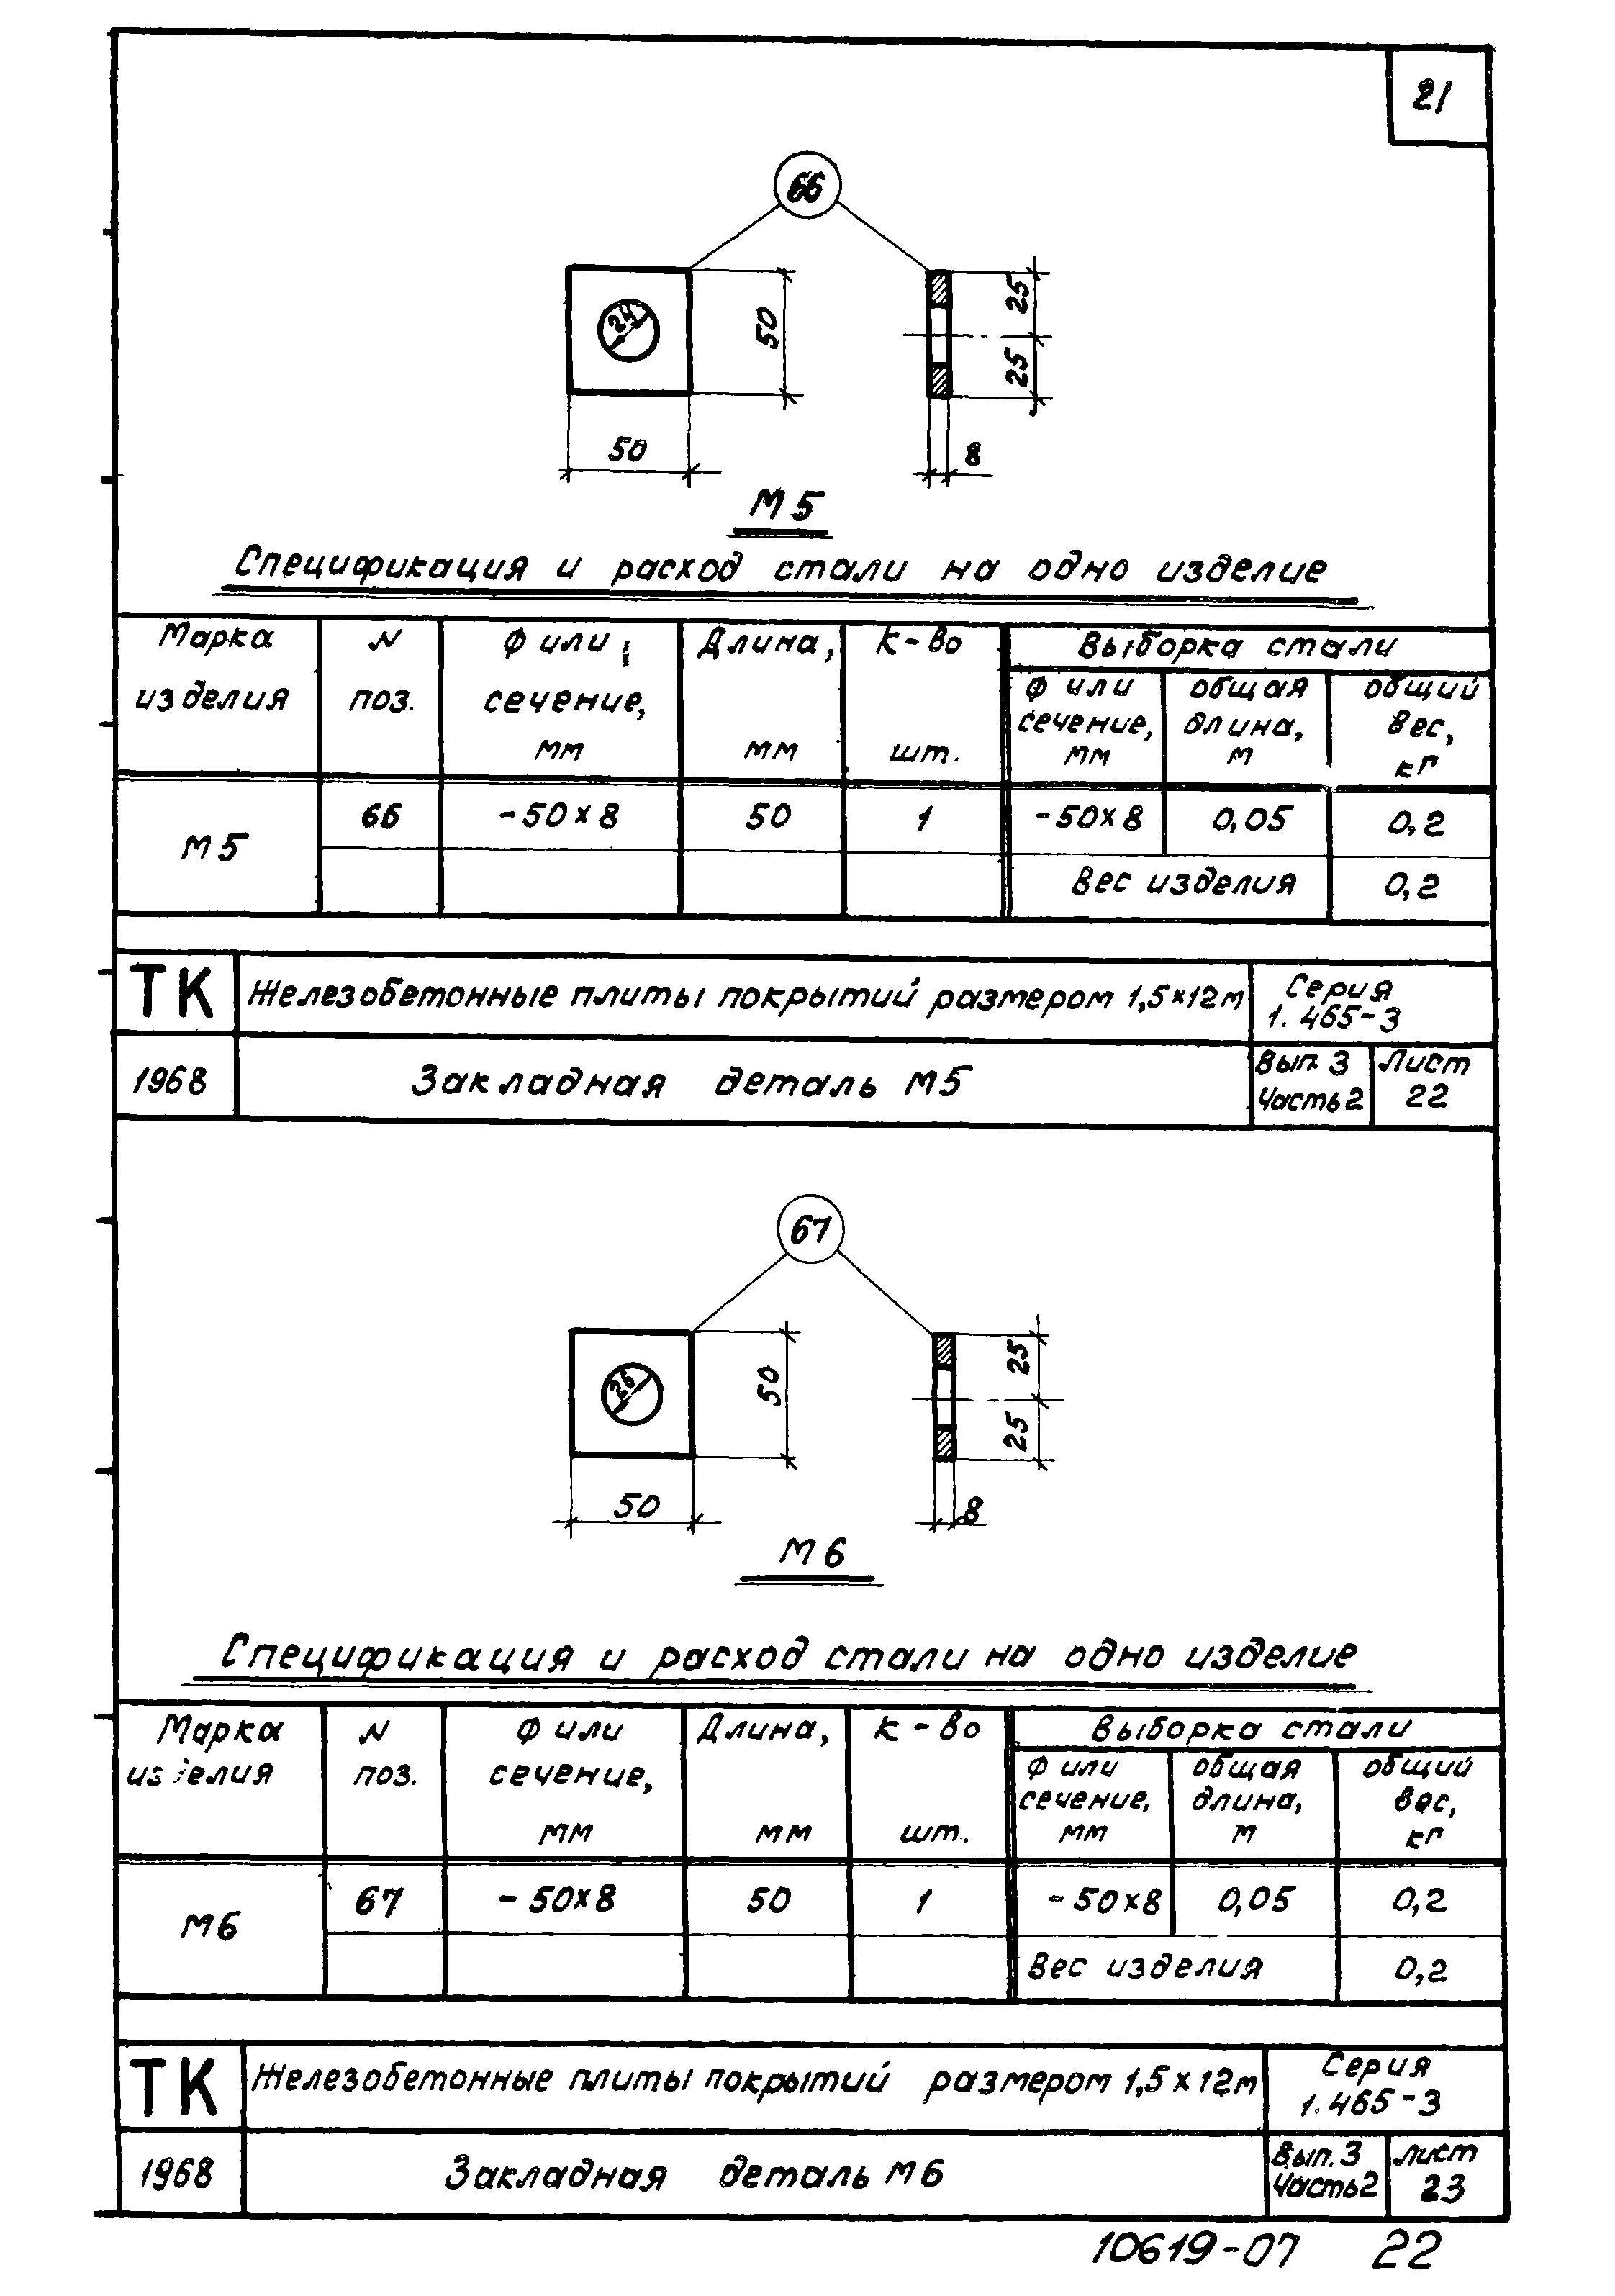 21
66
24
50
50
25
25
8
М5
Спецификация и расход стали на одно изделие
Марка изделия
N поз.
Ф или сечение, мм
Длина, мм
К-во шт.
Выборка стали
Ф или сечение, мм
общая длина, м
общий вес, кг
М5
66
-50×8
50
1
-50×8
0,05
0,2
Вес изделия
0,2
ТК
Железобетонные плиты покрытий размером 1,5×12м
Серия
1.465-3
1968
Закладная деталь М5
Вып. 3
Часть 2
Лист
22
67
26
50
50
25
25
8
М6
Спецификация и расход стали на одно изделие
Марка изделия
N поз.
Ф или сечение, мм
Длина, мм
К-во шт.
Выборка стали
Ф или сечение, мм
общая длина, м
общий вес, кг
М6
67
-50×8
50
1
-50×8
0,05
0,2
Вес изделия
0,2
ТК
Железобетонные плиты покрытий размером 1,5×12м
Серия
1.465-3
1968
Закладная деталь М6
Вып. 3
Часть 2
Лист
23
10619-07 22